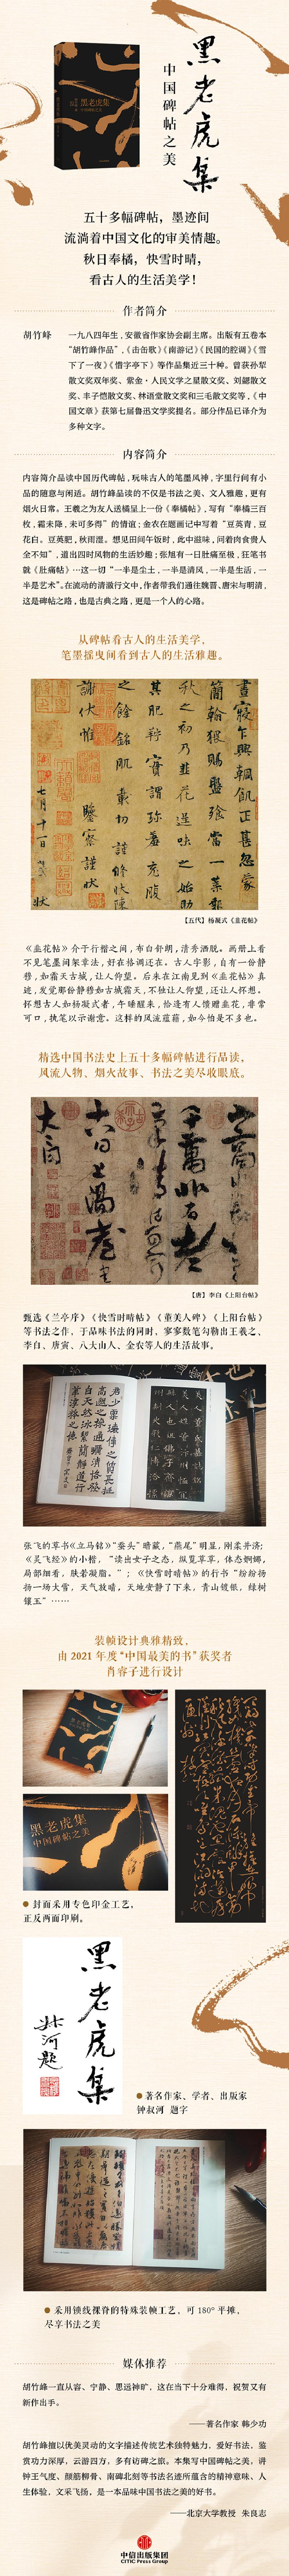 黑老虎集
中国碑帖之美
五十多幅碑帖，墨迹间
流淌着中国文化的审美情趣。
秋日奉橘，快雪时晴，
看古人的生活美学！
作者简介
胡竹峰
一九八四年生，安徽省作家协会副主席。出版有五卷本
“胡竹峰作品”，《击缶歌》《南游记》《民国的腔调》《雪
下了一夜》《惜字亭下》等作品集近三十种。曾获孙犁
散文奖双年奖、紫金·人民文学之星散文奖、刘勰散文
奖、丰子恺散文奖、林语堂散文奖和三毛散文奖等，《中
国文章》获第七届鲁迅文学奖提名。部分作品已译介为
多种文字。
内容简介
内容简介品读中国历代碑帖，玩味古人的笔墨风神，字里行间有小
品的随意与闲适。胡竹峰品读的不仅是书法之美、文人雅趣，更有
烟火日常。王羲之为友人送橘呈上一份《奉橘帖》，写有“奉橘三百
枚，霜未降，未可多得”的情谊；金农在题画记中写着“豆荚青，豆
花白。豆荚肥，秋雨湿。想见田间午饭时，此中滋味，问着肉食贵人
全不知”，道出四时风物的生活妙趣；张旭有一日肚痛至极，狂笔书
就《肚痛帖》…这一切“一半是尘土，一半是清风，一半是生活，一
半是艺术”。在流动的清澈行文中，作者带我们通往魏晋、唐宋与明清，
这是碑帖之路，也是古典之路，更是一个人的心路。
从碑帖看古人的生活美学，
笔墨摇曳间看到古人的生活雅趣。
晝寢乍興輖飢正甚忽蒙
簡翰猥賜盤飧當一葉報
秋之初乃韭花逞味之始助
其肥羜實謂珍羞充腹
之餘銘肌載切謹修狀陳
謝伏惟鑒察謹狀
七月十一日 狀
【五代】杨凝式《韭花帖》
《韭花帖》介于行楷之间，布白舒朗，清秀洒脱。画册上看
不见笔墨间架章法，好在格调还在。古人字影，自有一份静
穆，如霜天古城，让人仰望。后来在江南见到《韭花帖》真
迹，发觉那份静穆如古城霜天，不独让人仰望，还让人怀想。
怀想古人如杨凝式者，午睡醒来，恰逢有人馈赠韭花，非常
可口，执笔以示谢意。这样的风流蕴藉，如今怕是不多也。
精选中国书法史上五十多幅碑帖进行品读，
风流人物、烟火故事、书法之美尽收眼底。
【唐】李白《上阳台帖》
甄选《兰亭序》《快雪时晴帖》《董美人碑》《上阳台帖》
等书法之作，于品味书法的同时，寥寥数笔勾勒出王羲之、
李白、唐寅、八大山人、金农等人的生活故事。
张飞的草书《立马铭》“蚕头”暗藏，“燕尾”明显，刚柔并济；
《灵飞经》的小楷，“读出女子之态，纵览草草，体态婀娜，
局部细看，肤若凝脂。”；《快雪时晴帖》的行书“纷纷扬
扬一场大雪，天气放晴，天地安静了下来，青山镀银，绿树
镶玉”……
装帧设计典雅精致，
由 2021 年度“中国最美的书”获奖者
肖睿子进行设计
黑老虎集
中国碑帖之美
封面采用专色印金工艺，
正反两面印刷。
黑老虎集
叔河题
著名作家、学者、出版家
钟叔河 题字
采用锁线裸脊的特殊装帧工艺，可 180° 平摊，
尽享书法之美
媒体推荐
胡竹峰一直从容、宁静、思远神旷，这在当下十分难得，祝贺又有
新作出手。
——著名作家 韩少功
胡竹峰擅以优美灵动的文字描述传统艺术独特魅力，爱好书法，鉴
赏功力深厚，云游四方，多有访碑之旅。本集写中国碑帖之美，讲
钟王气度、颜筋柳骨、南碑北刻等书法名迹所蕴含的精神意味、人
生体验，文采飞扬，是一本品味中国书法之美的好书。
——北京大学教授 朱良志
中信出版集团
CITIC Press Group